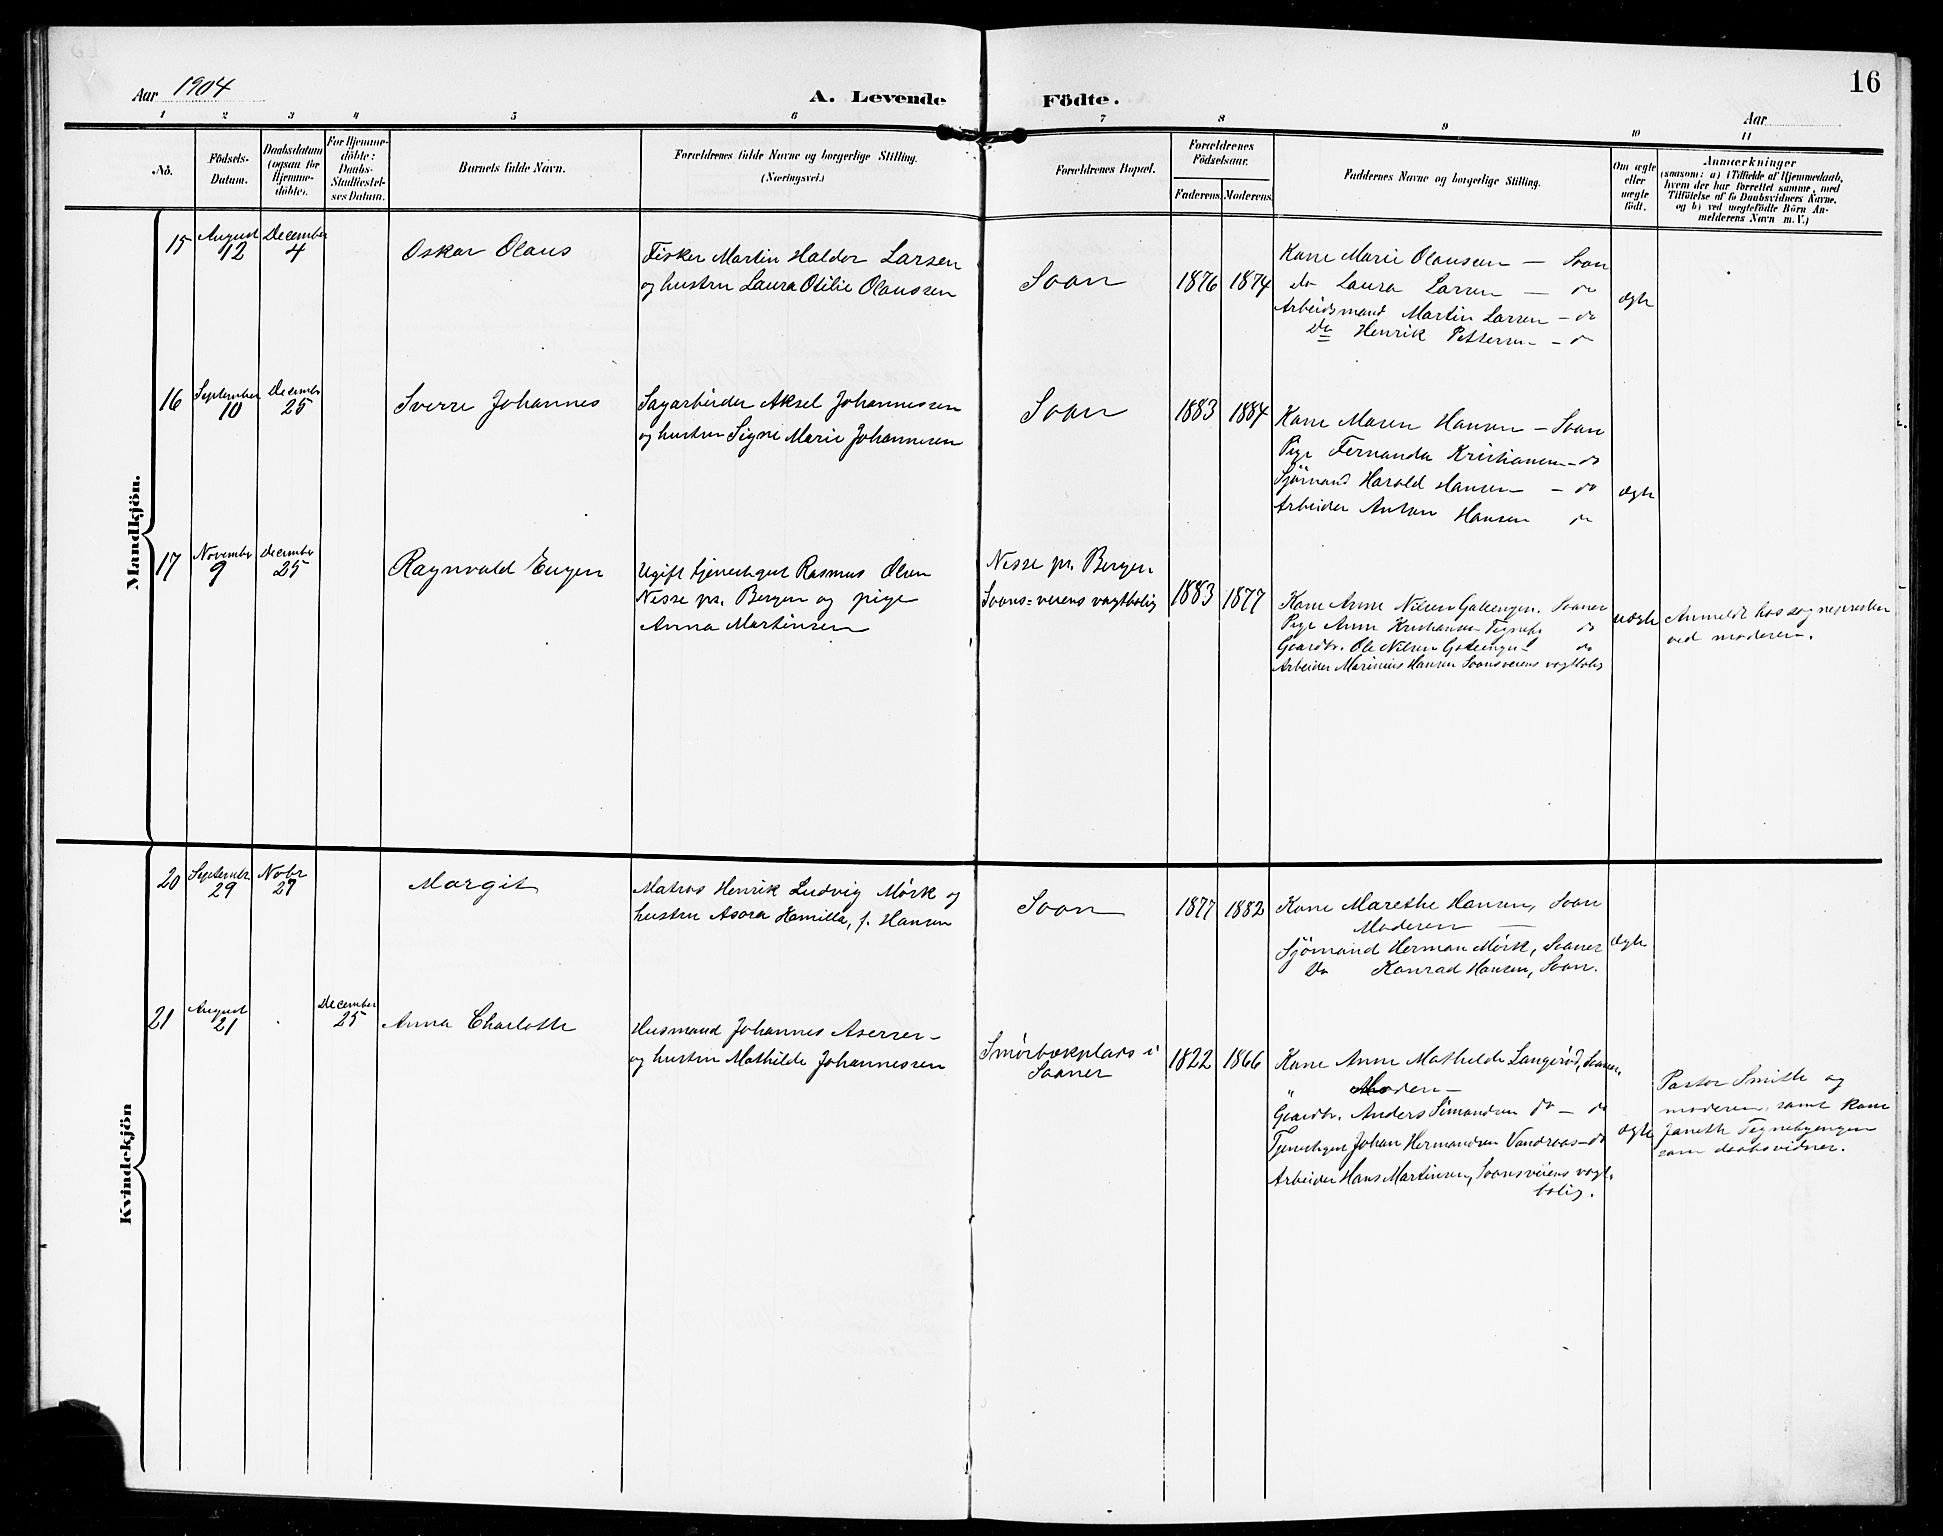 Aar 1904
A. Levende Födte.
16
Aar
1 2 3 4 5 6 7 8 9 10 11
No.
Födsels-
Datum.
Daabsdatum
(ogsaa for
Hjemme-
döbte).
For Hjemme-
döbte:
Daabs-
Stadfæstel-
ses Datum.
Barnets fulde Navn.
Forældrenes fulde Navne og borgerlige Stilling.
(Næringsvei.)
Forældrenes Bopæl.
Forældrenes
Födselsaar.
Faderens. Moderens.
Faddernes Navne og borgerlige Stilling.
Om ægte
eller
uægte
födt.
Anmærkninger
(saasom: a) i Tilfælde af Hjemmedaab,
hvem der har forrettet samme, med
Tilföielse af to Daabsvidners Navne,
og b) ved uægtefödte Börn An-
melderens Navn m. V.)
Mandkjön.
15
August
12
December
4
Oskar Olaus
Fisker Martin Haldor Larsen
og hustru Laura Otilie Olaussen
Soon
1876
1874
Kone Marie Olausen — Soon
do Laura Larsen — do
Arbeidsmand Martin Larsen — do
Do Henrik Pettersen — do
ægte
16
September
10
Decembr
25
Sverre Johannes
Sagarbeider Aksel Johannessen
og hustru Signe Marie Johannesen
Soon
1883
1884
Kone Maren Hansen — Soon
Pige Fernanda Kristiansen — do
Sjømand Harold Hansen — do
Arbeider Anton Hansen do
ægte
17
Novembr
9
Decembr
25
Ragnvald Eugen
Ugift tjenestegut Rasmus Olsen
Nesse pr. Bergen og pige
Anna Martinsen
Nesse pr. Bergen.
Soons=veiens vagtbolig
1883
1877
Kone Anne Nilsen Galeengen. Saaner
Pige Anna Kristiansen Tegneby do
Gaardbr. Ole Nilsen do
Arbeider Marinius Hansen Soonsveiens vagtbolig
uægte
Anmeldt hos sognepresten
ved moderen.
Kvindekjön
20
Septembr
29
Nobr
27
Margit
Matros Henrik Ludvig Mørk og
hustru Asora Kamilla, f. Hansen
Soon
1877
1882
Kone Marethe Hansen, Soon
Moderen —
Sjømand Herman Mørk, Saaner
Do Konrad Hansen, Soon.
ægte
21
August
21
December
25
Anna Charlotte
Husmand Johannes
og hustru Mathilde Johannessen
Smørbækplads i
Saaner
1822
1866
Kone Anne Mathilde Langerød, Saaner.
" Moderen —
Gaardbr. Anders Simonsen do — do
Tjenestegut Johan Hermansen Vandraas — do
Arbeider Hans Martinsen, Soonsveiens vagt-
bolig.
ægte
Pastor Smith og
moderen, samt kone
Janeth Tegnebyengen
som daabsvidner.